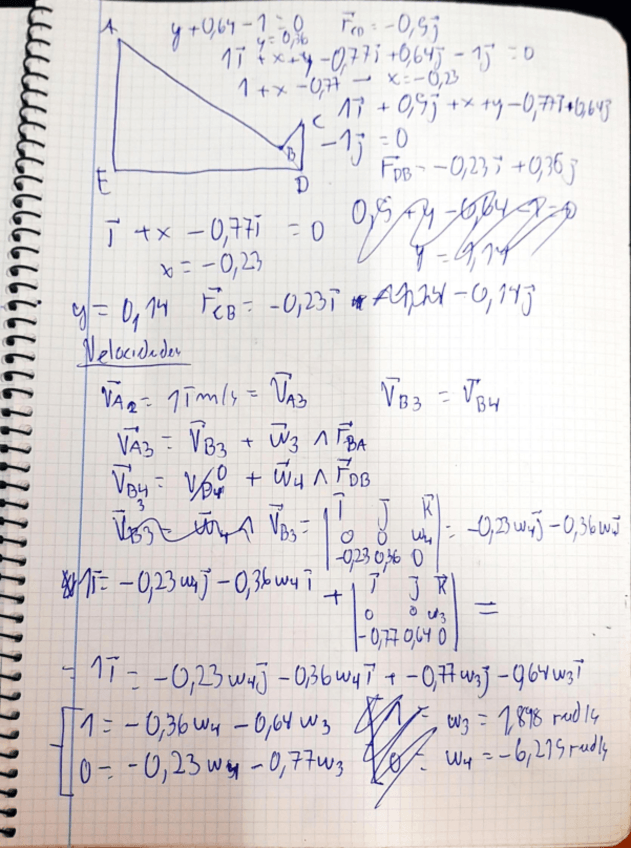 A
y + 0,64 - 1 = 0
y = 0,36
r⃗CD = -0,5j⃗
1i⃗ + x + y - 0,77i⃗ + 0,64j⃗ - 1j⃗ = 0
1 + x - 0,77 → x = -0,23
1i⃗ + 0,5j⃗ + x + y - 0,77i⃗ + 0,64j⃗
- 1j⃗ = 0
C
B
E
D
r⃗DB = -0,23i⃗ + 0,36j⃗
i⃗ + x - 0,77i⃗ = 0
x = -0,23
y = 0,14
r⃗CB = -0,23i⃗ - 0,14j⃗
Velocidades
V⃗A2 = 1i⃗ m/s = V⃗A3
V⃗B3 = V⃗B4
V⃗A3 = V⃗B3 + w⃗3 ∧ r⃗BA
V⃗B4 = V⃗D4 0 + w⃗4 ∧ r⃗DB
V⃗B3 = | i⃗ j⃗ k⃗ | = -0,23w4j⃗ - 0,36w4i⃗
0 0 w4
-0,23 0,36 0
1i⃗ = -0,23w4j⃗ - 0,36w4i⃗ + | i⃗ j⃗ k⃗ | =
0 0 w3
-0,77 0,64 0
= 1i⃗ = -0,23w4j⃗ - 0,36w4i⃗ + -0,77w3j⃗ - 0,64w3i⃗
1 = -0,36w4 - 0,64w3
= w3 = 1,898 rad/s
0 = -0,23w4 - 0,77w3
= w4 = -6,215 rad/s